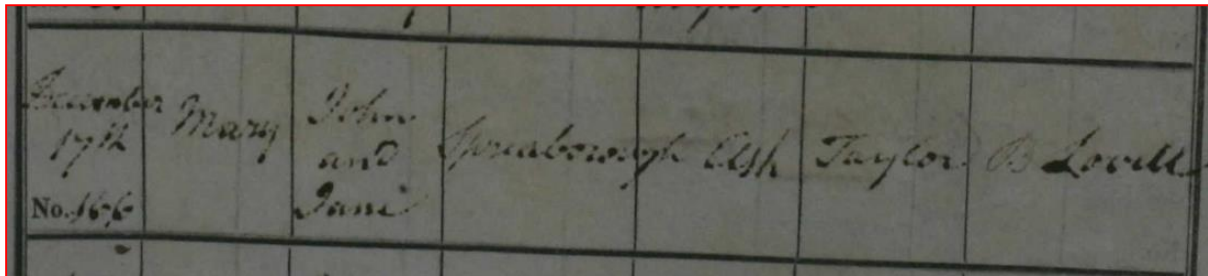 December
17th
No. 166
Mary
John
and
Jane
Spreaborough
Ash
Taylor
B Lovell